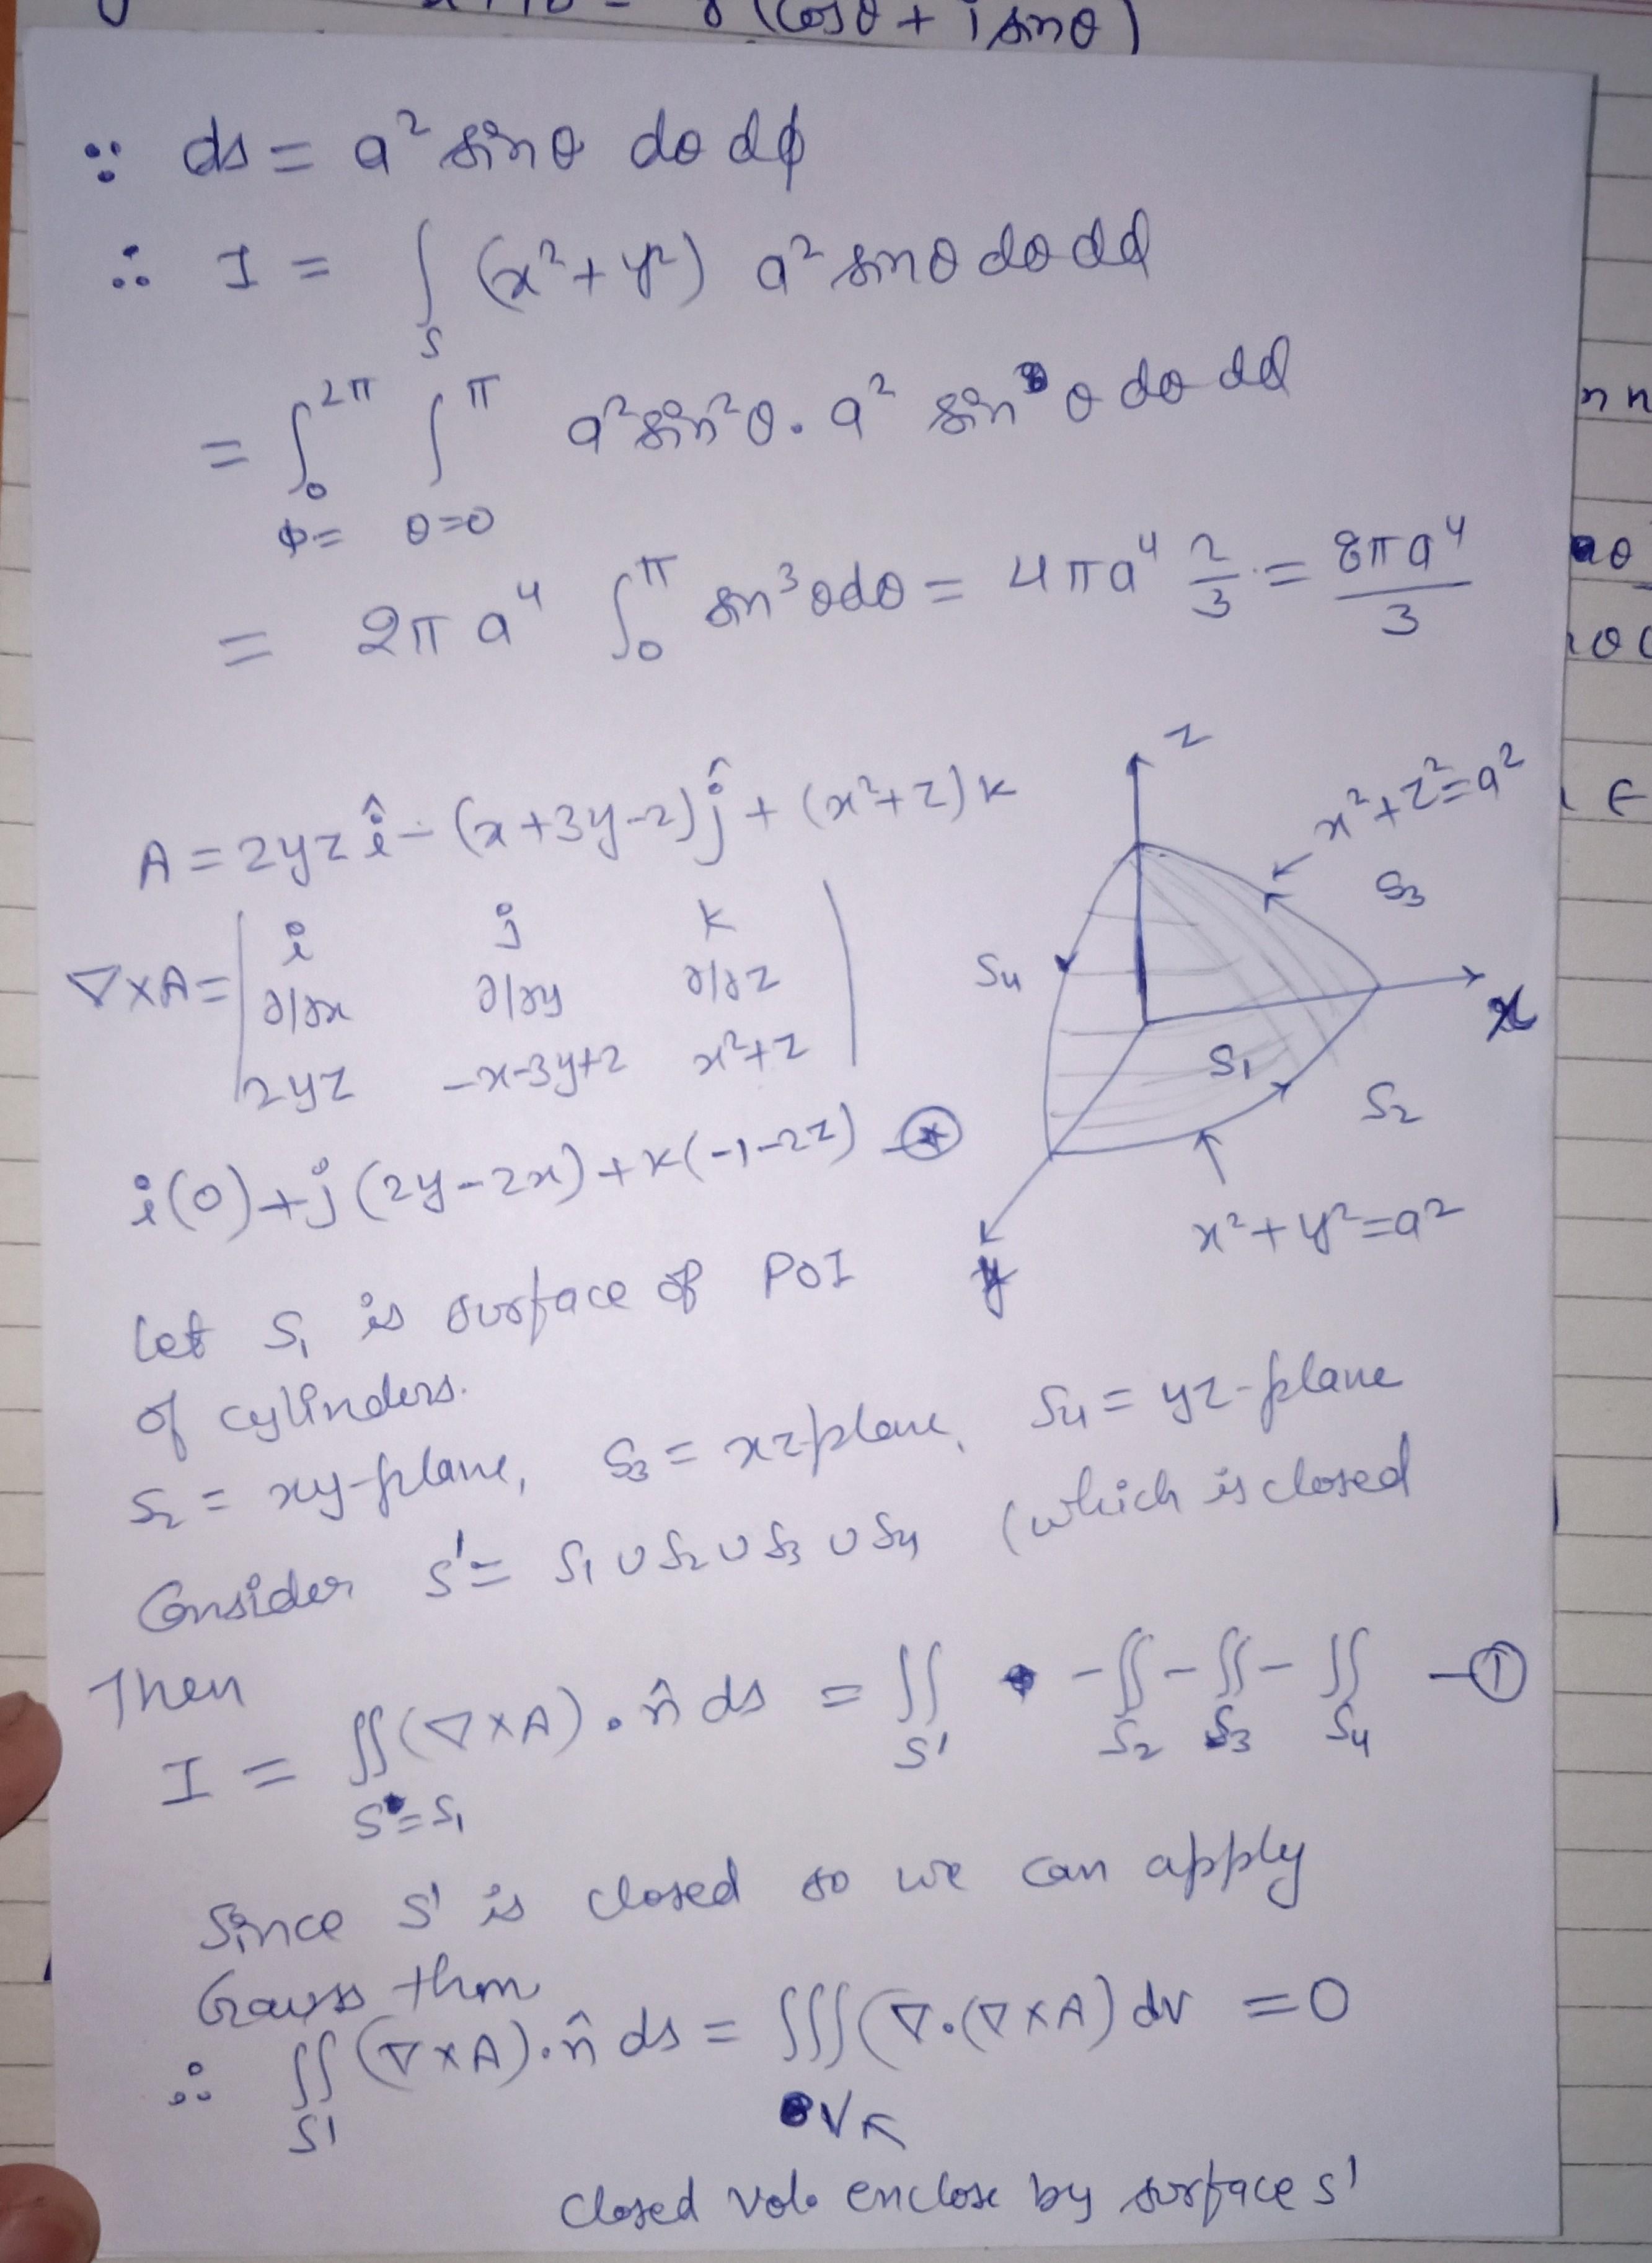 (cosθ + i sinθ)
∵ ds = a² sinθ dθ dϕ
∴ I = ∫_S (x²+y²) a² sinθ dθ dϕ
= ∫_{ϕ=0}^{2π} ∫_{θ=0}^{π} a² sin²θ . a² sin θ dθ dϕ
= 2π a⁴ ∫_0^π sin³θ dθ = 4πa⁴ 2/3 = 8πa⁴/3
A = 2yz î - (x+3y-2) ĵ + (x²+z) k
∇×A = | i j k
∂/∂x ∂/∂y ∂/∂z
2yz -x-3y+2 x²+z |
i(0) + j(2y-2x) + k(-1-2z) — ⊛
z
x²+z²=a²
S₃
S₄
x
S₁
S₂
x²+y²=a²
y
Let S₁ is surface of POI
of cylinders.
S₂ = xy-plane, S₃ = xz plane, S₄ = yz-plane
Consider S' = S₁ ∪ S₂ ∪ S₃ ∪ S₄ (which is closed
Then
I = ∬_{S=S₁} (∇×A) . n̂ ds = ∬_{S'} - ∬_{S₂} - ∬_{S₃} - ∬_{S₄} — ①
Since S' is closed so we can apply
Gauss thm
∴ ∬_{S'} (∇×A) . n̂ ds = ∭_V (∇.(∇×A) dv = 0
Closed vol. enclose by surface S'